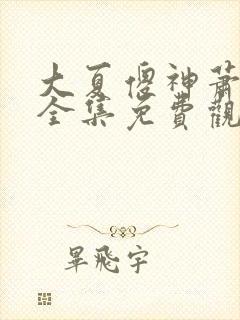 大夏傻神蕭
全集免費觀
畢飛宇